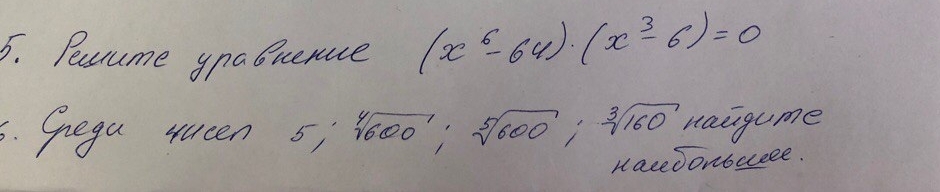 5. Решите уравнение (x⁶ - 64) · (x³ - 6) = 0
6. Среди чисел 5; ⁴√600; ⁵√600; ³√160 найдите
наибольшее.